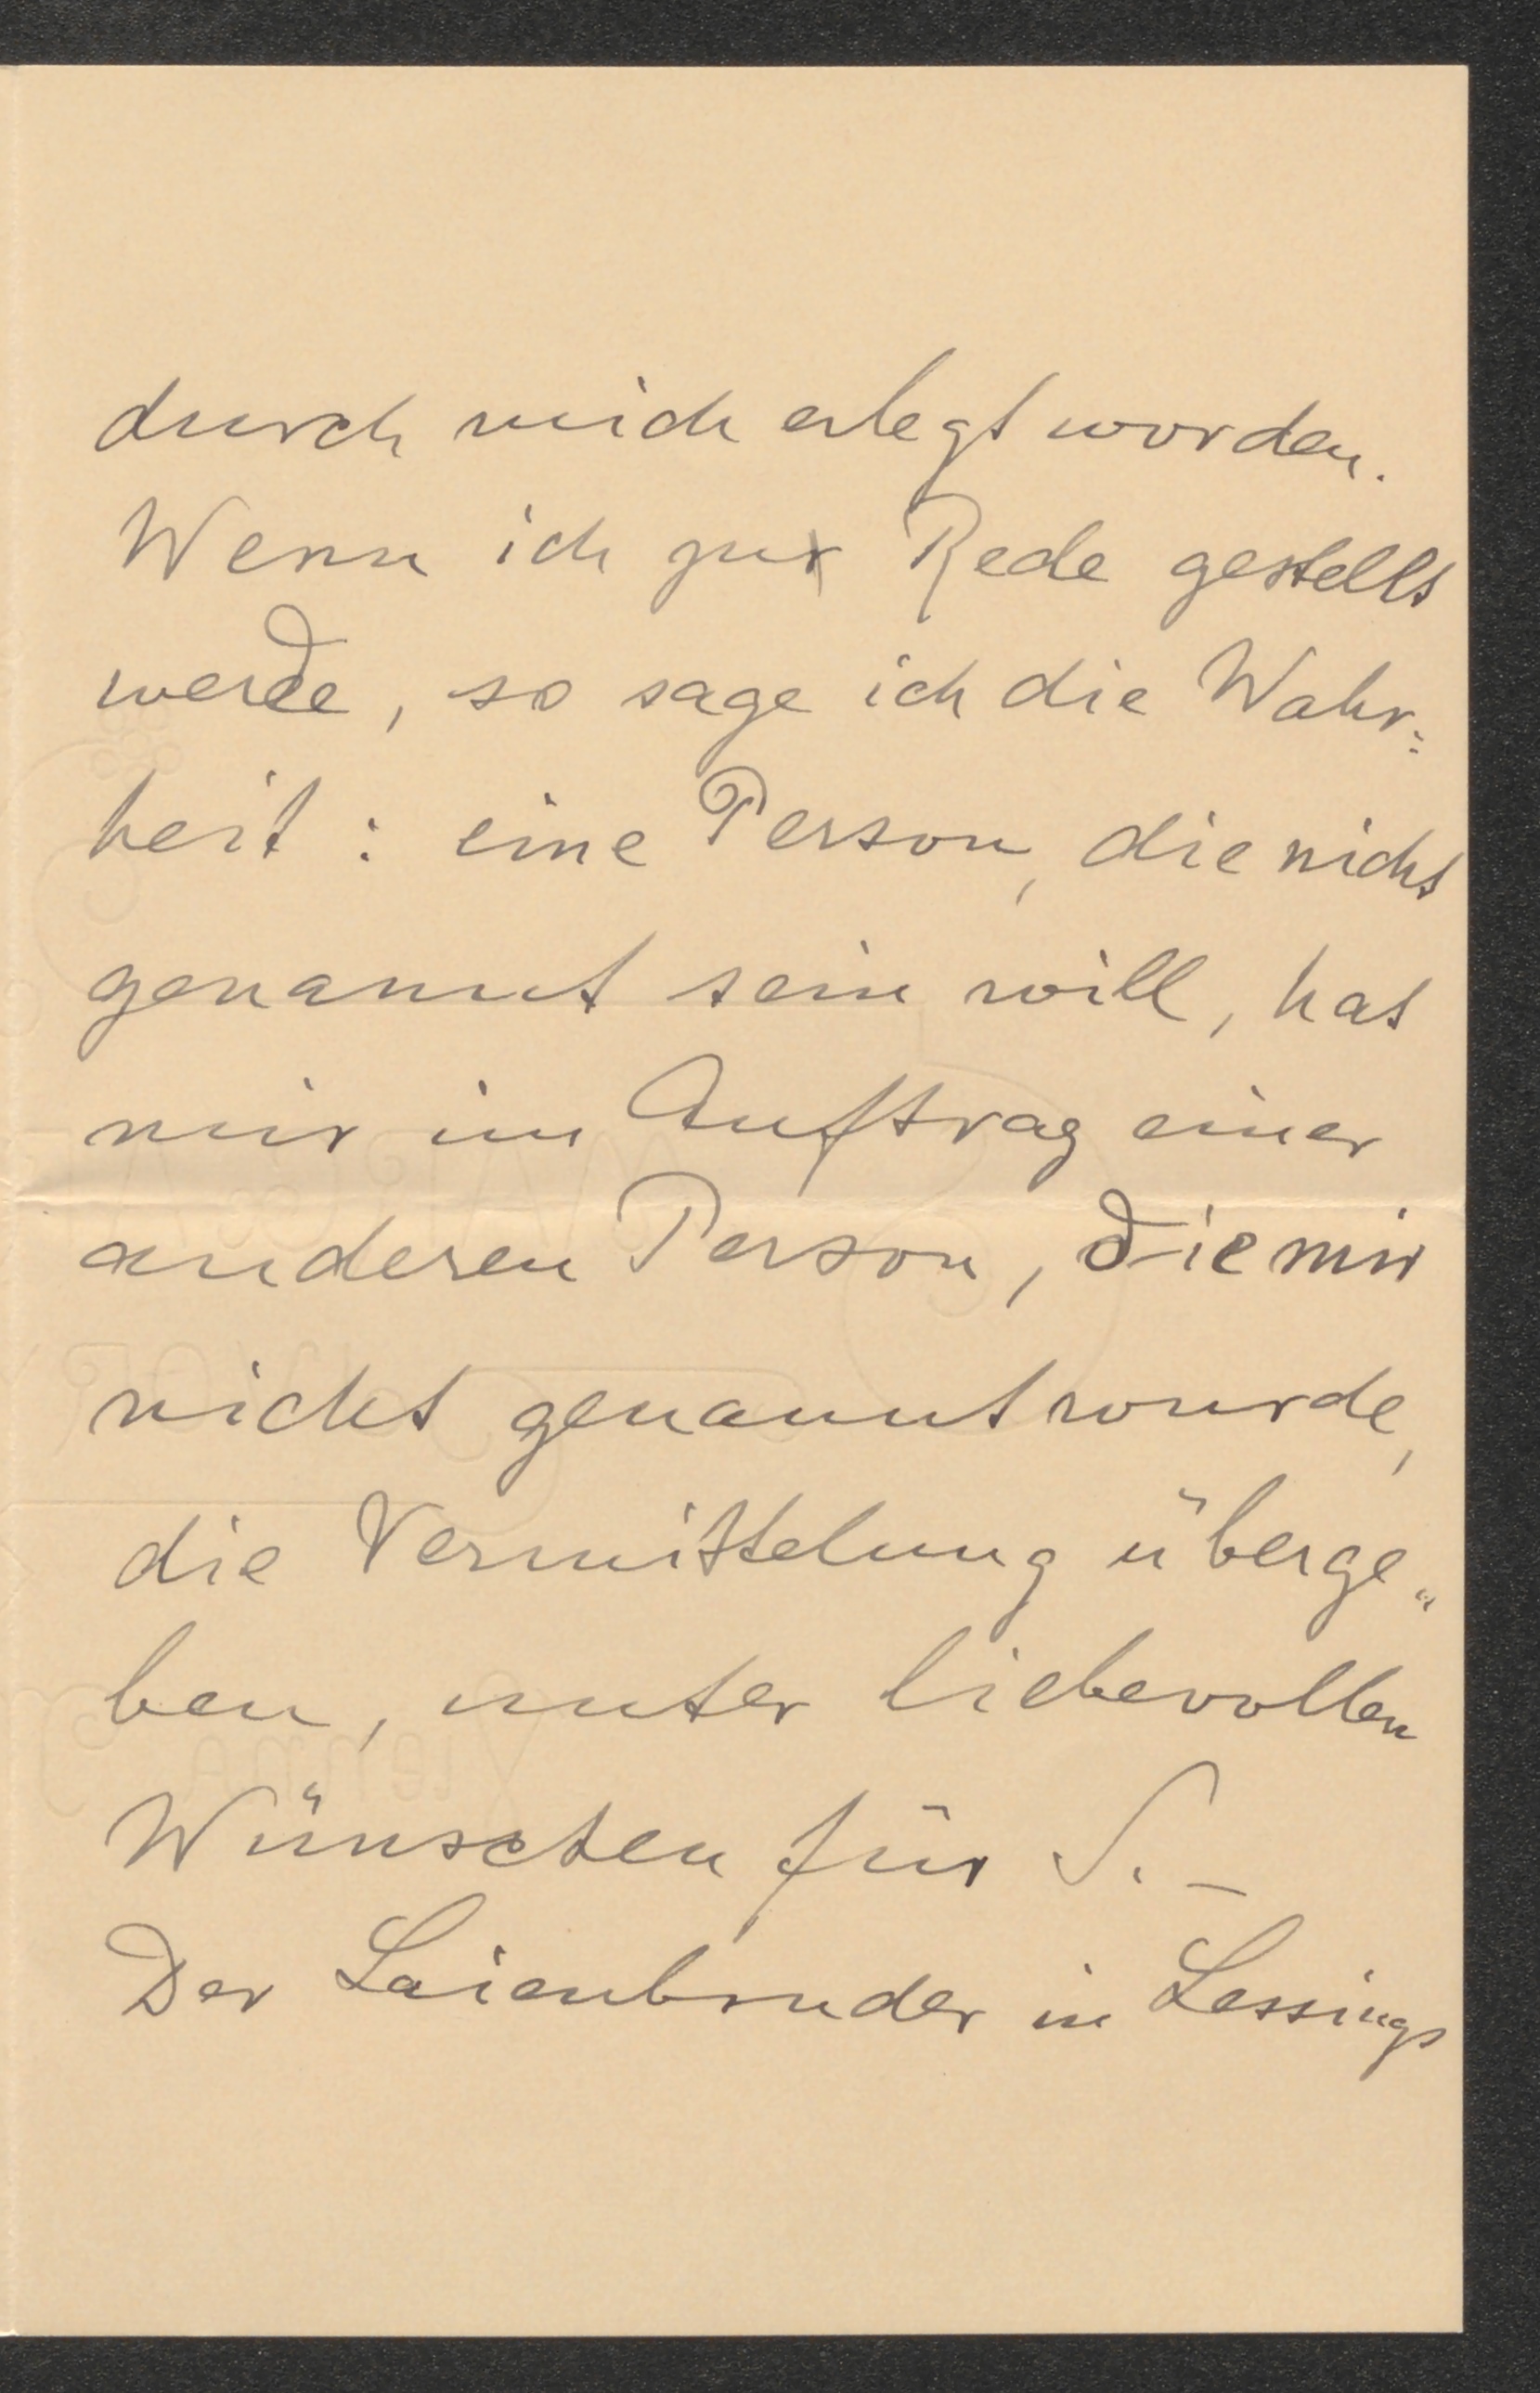 durch mich erlegt worden.
Wenn ich zur Rede gestellt
werde, so sage ich die Wahr=
heit : eine Person, die nicht
genannt sein will, hat
mir im Auftrag einer
anderen Person, die mir
nicht genannt wurde,
die Vermittelung überge=
ben, unter liebevollen
Wünschen für S. –
Der Laienbruder in Lessings